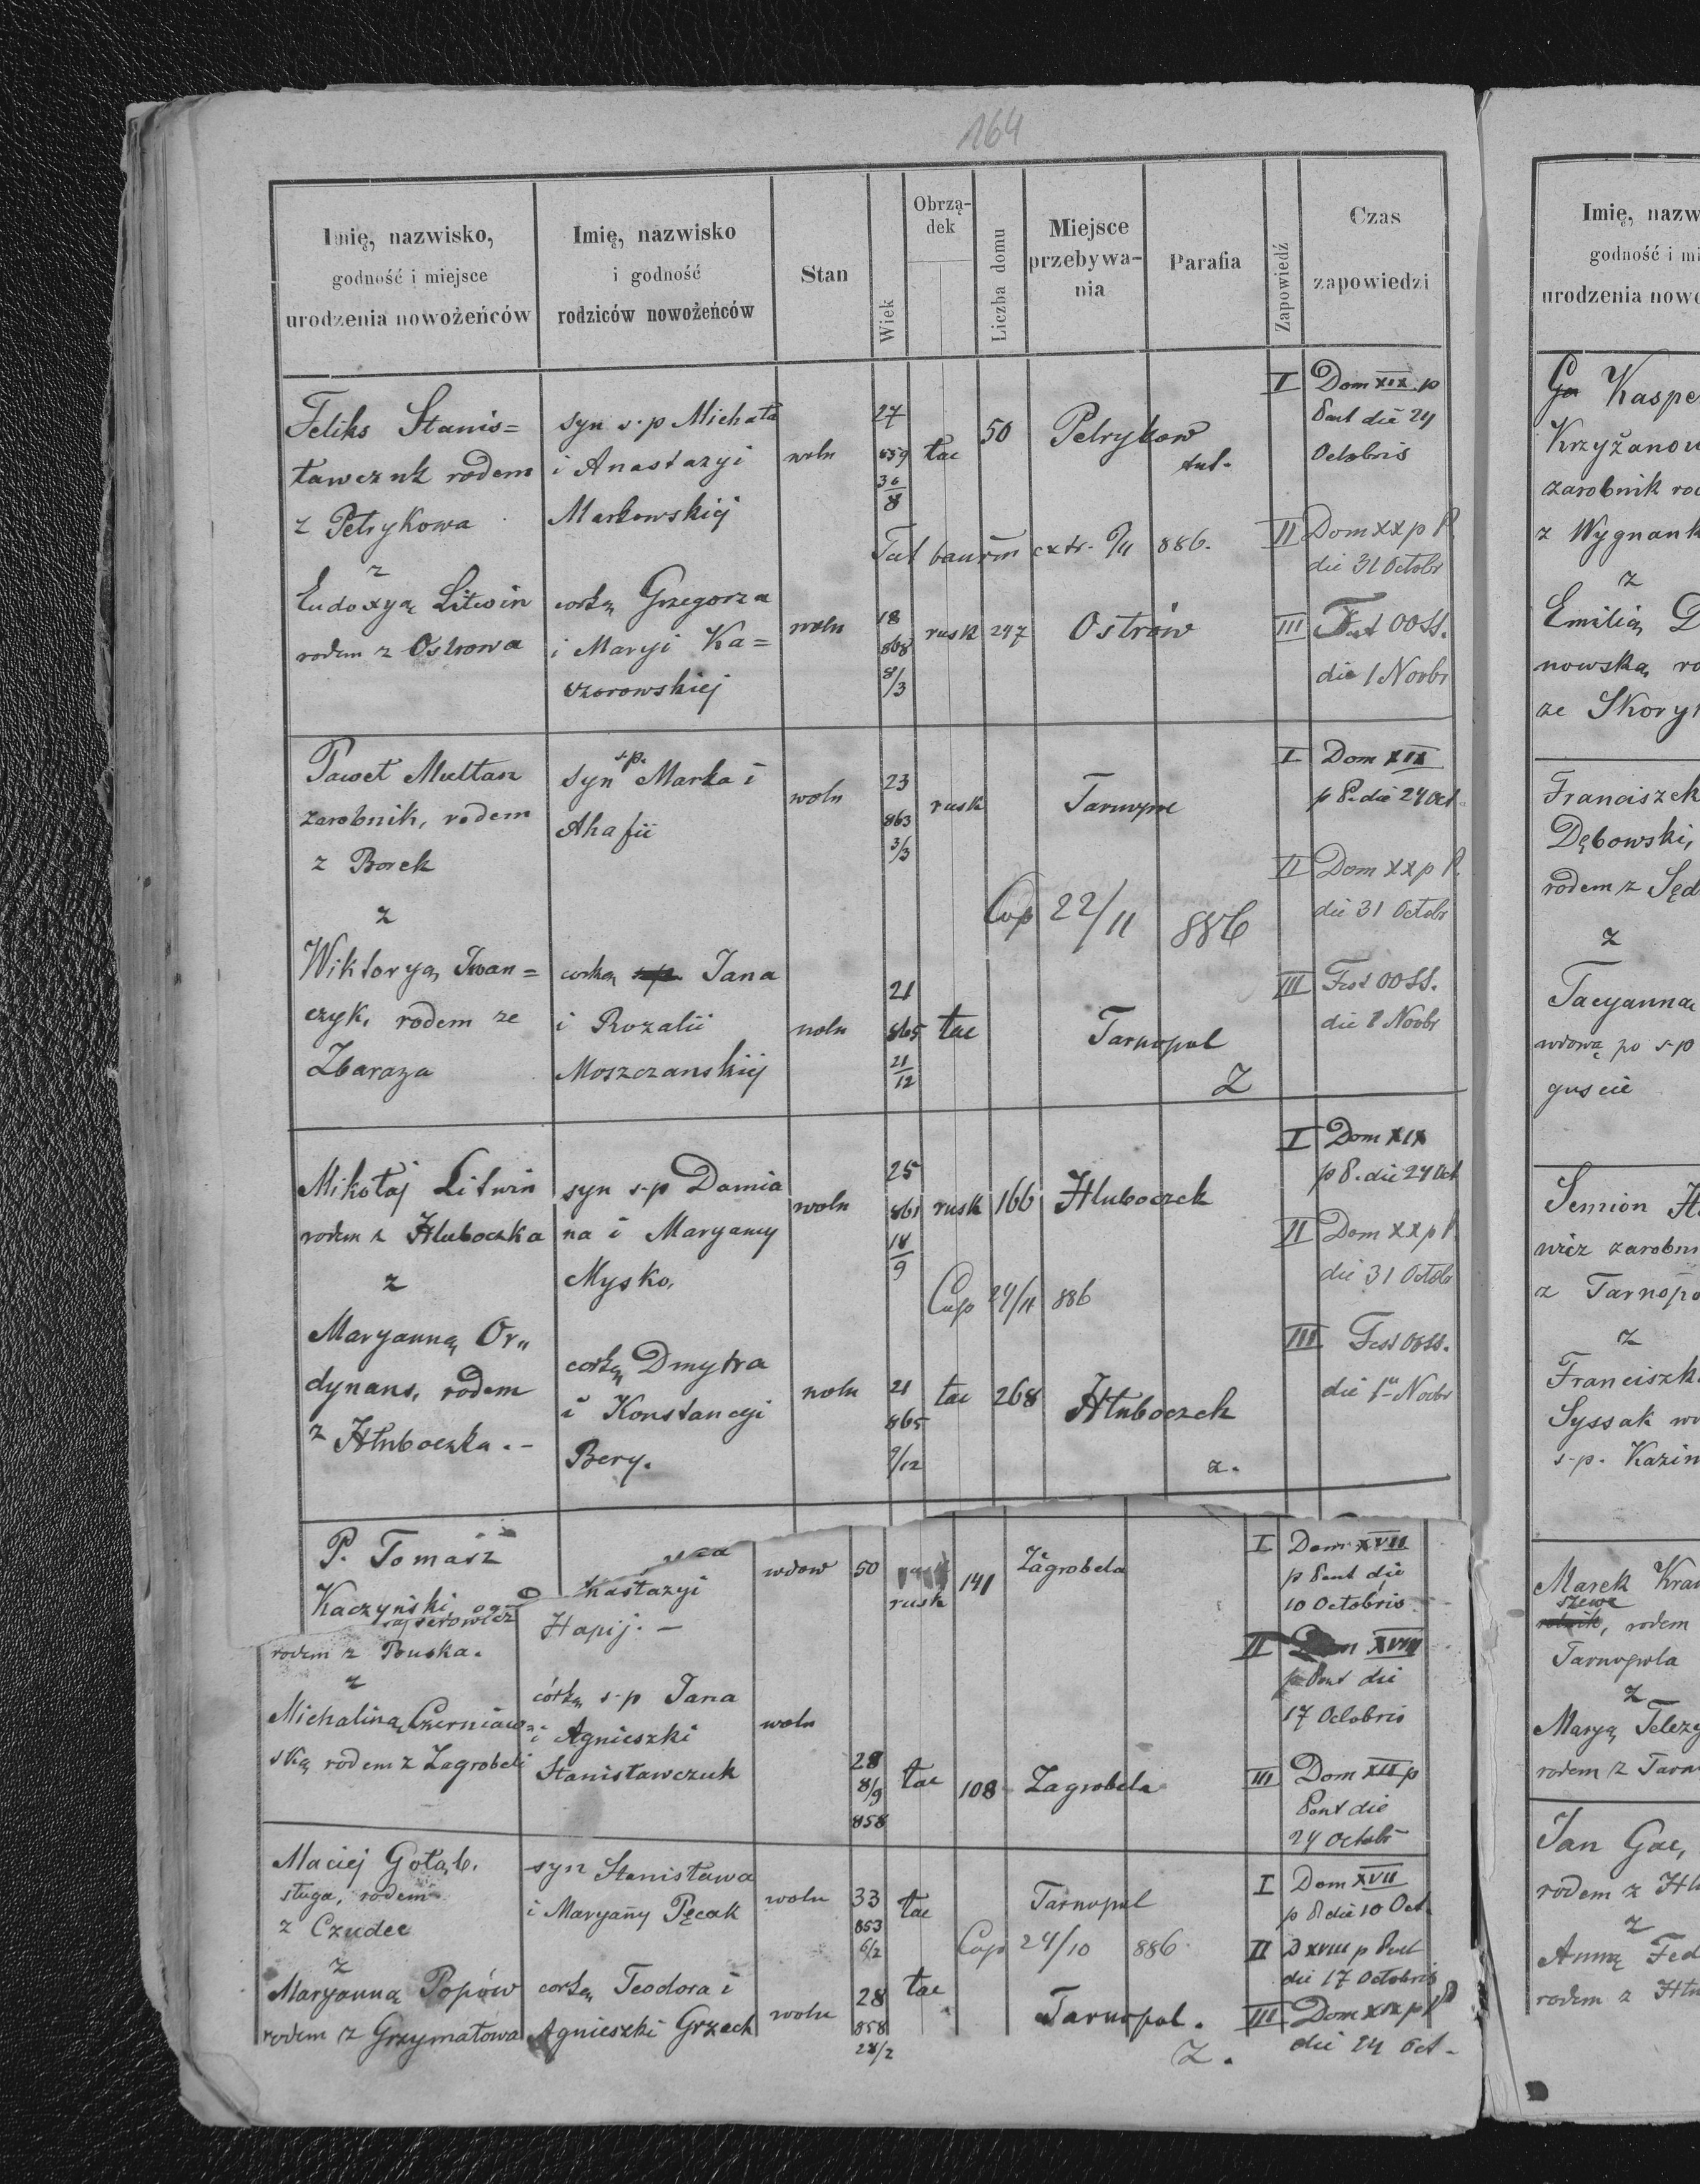 164
Imię, nazwisko,
godność i miejsce
urodzenia nowożeńców
Imię, nazwisko
i godność
rodziców nowożeńców
Stan
Wiek
Obrzą-
dek
Liczba domu
Miejsce
przebywa-
nia
Parafia
Zapowiedź
Czas
zapowiedzi
Feliks Stanis=
ławczuk rodem
z Petrykowa
z
Eudoxyą Litwin
rodem z Ostrowa
syn s.p Michała
i Anastazyi
Markowskiej
corką Grzegorza
i Maryi Ka=
czorowskiej
woln
27
859
30
8
łac
50
Petrykow
tut.
extr. 886.
woln
18
868
8/3
rusk
247
Ostrów
I Dom XIX. p
Pent die 24
Octobris
II Dom XX p P.
die 31 Octobr
III Fest OOSS.
die 1 Novbr
Paweł Multan
zarobnik, rodem
z Borek
z
Wiktoryą Iwan=
czyk, rodem ze
Zbaraza
s.p.
syn Marka i
Ahafii
corką Jana
i Rozalii
Moszczanskiej
woln
23
863
3/3
rusk
Tarnopol
Cop 22/11 886
woln
21
865
21
12
łac
Tarnopol
Z
I Dom XIX
p P. die 24 Oct.
II Dom XX p P.
die 31 Octobr
III Fest OOSS.
die 1 Novbr
Mikołaj Litwin
rodem z Hłuboczka
z
Maryanną Or„
dynans, rodem
z Hłuboczka.-
syn s-p Damia
na i Maryanny
Mysko,
corką Dmytra
i Konstancyi
Bery.
woln
25
861
18
9
rusk
166
Hłuboczek
Cop 24/11 886
woln
21
865
9/12
łac
268
Hłuboczek
z.
I Dom XIX
p P. die 24 Oct
II Dom XX p P.
die 31 Octobr
III Fest OOSS.
die 1 Novbr
P. Tomasz
Kaczyński
rodem z Buska.
z
Michaliną Czerniaw=
ską rodem z Zagrobeli
nastazyi
Hapij.-
córką s-p Jana
i Agnieszki
Stanisławczuk
wdow
50
rusk
141
Zagrobela
woln
28
8/9
858
łac
108
Zagrobela
I Dom XVII
p Pent die
10 Octobris
II Dom XVIII
p Pent die
17 Octobris
III Dom XIX p
Pent die
24 Octobr
Maciej Gołąb.
sługa, rodem
z Czudec
z
Maryanną Popów
rodem z Grzymałowa
syn Stanisława
i Maryanny Pęcak
corką Teodora i
Agnieszki Grzech
woln
33
853
6/2
łac
Tarnopol
Cop 24/10 886
woln
28
858
28/2
łac
Tarnopol.
Z.
I Dom XVII
p P die 10 Oct.
II D XVIII p Pent
die 17 Octobris
III Dom XIX p P
die 24 Oct-
Imię, nazw
godność i mi
urodzenia nowo
Kaspe
Krzyżanow
zarobnik ro
z Wygnank
z
Emilią D
nowską, ro
ze Skory
Franciszek
Dębowski,
rodem z Sęd
z
Tacyanną
wdową po s-p
guscie
Semion H
wicz zarobn
z Tarnopo
z
Franciszk
Syssak w
s-p. Kazim
Marek Kra
szewc
rolnik, rodem
Tarnopola
z
Maryą Telezy
rodem z Tarn
Jan Gac,
rodem z Hł
z
Anną Fed
rodem z Hłu